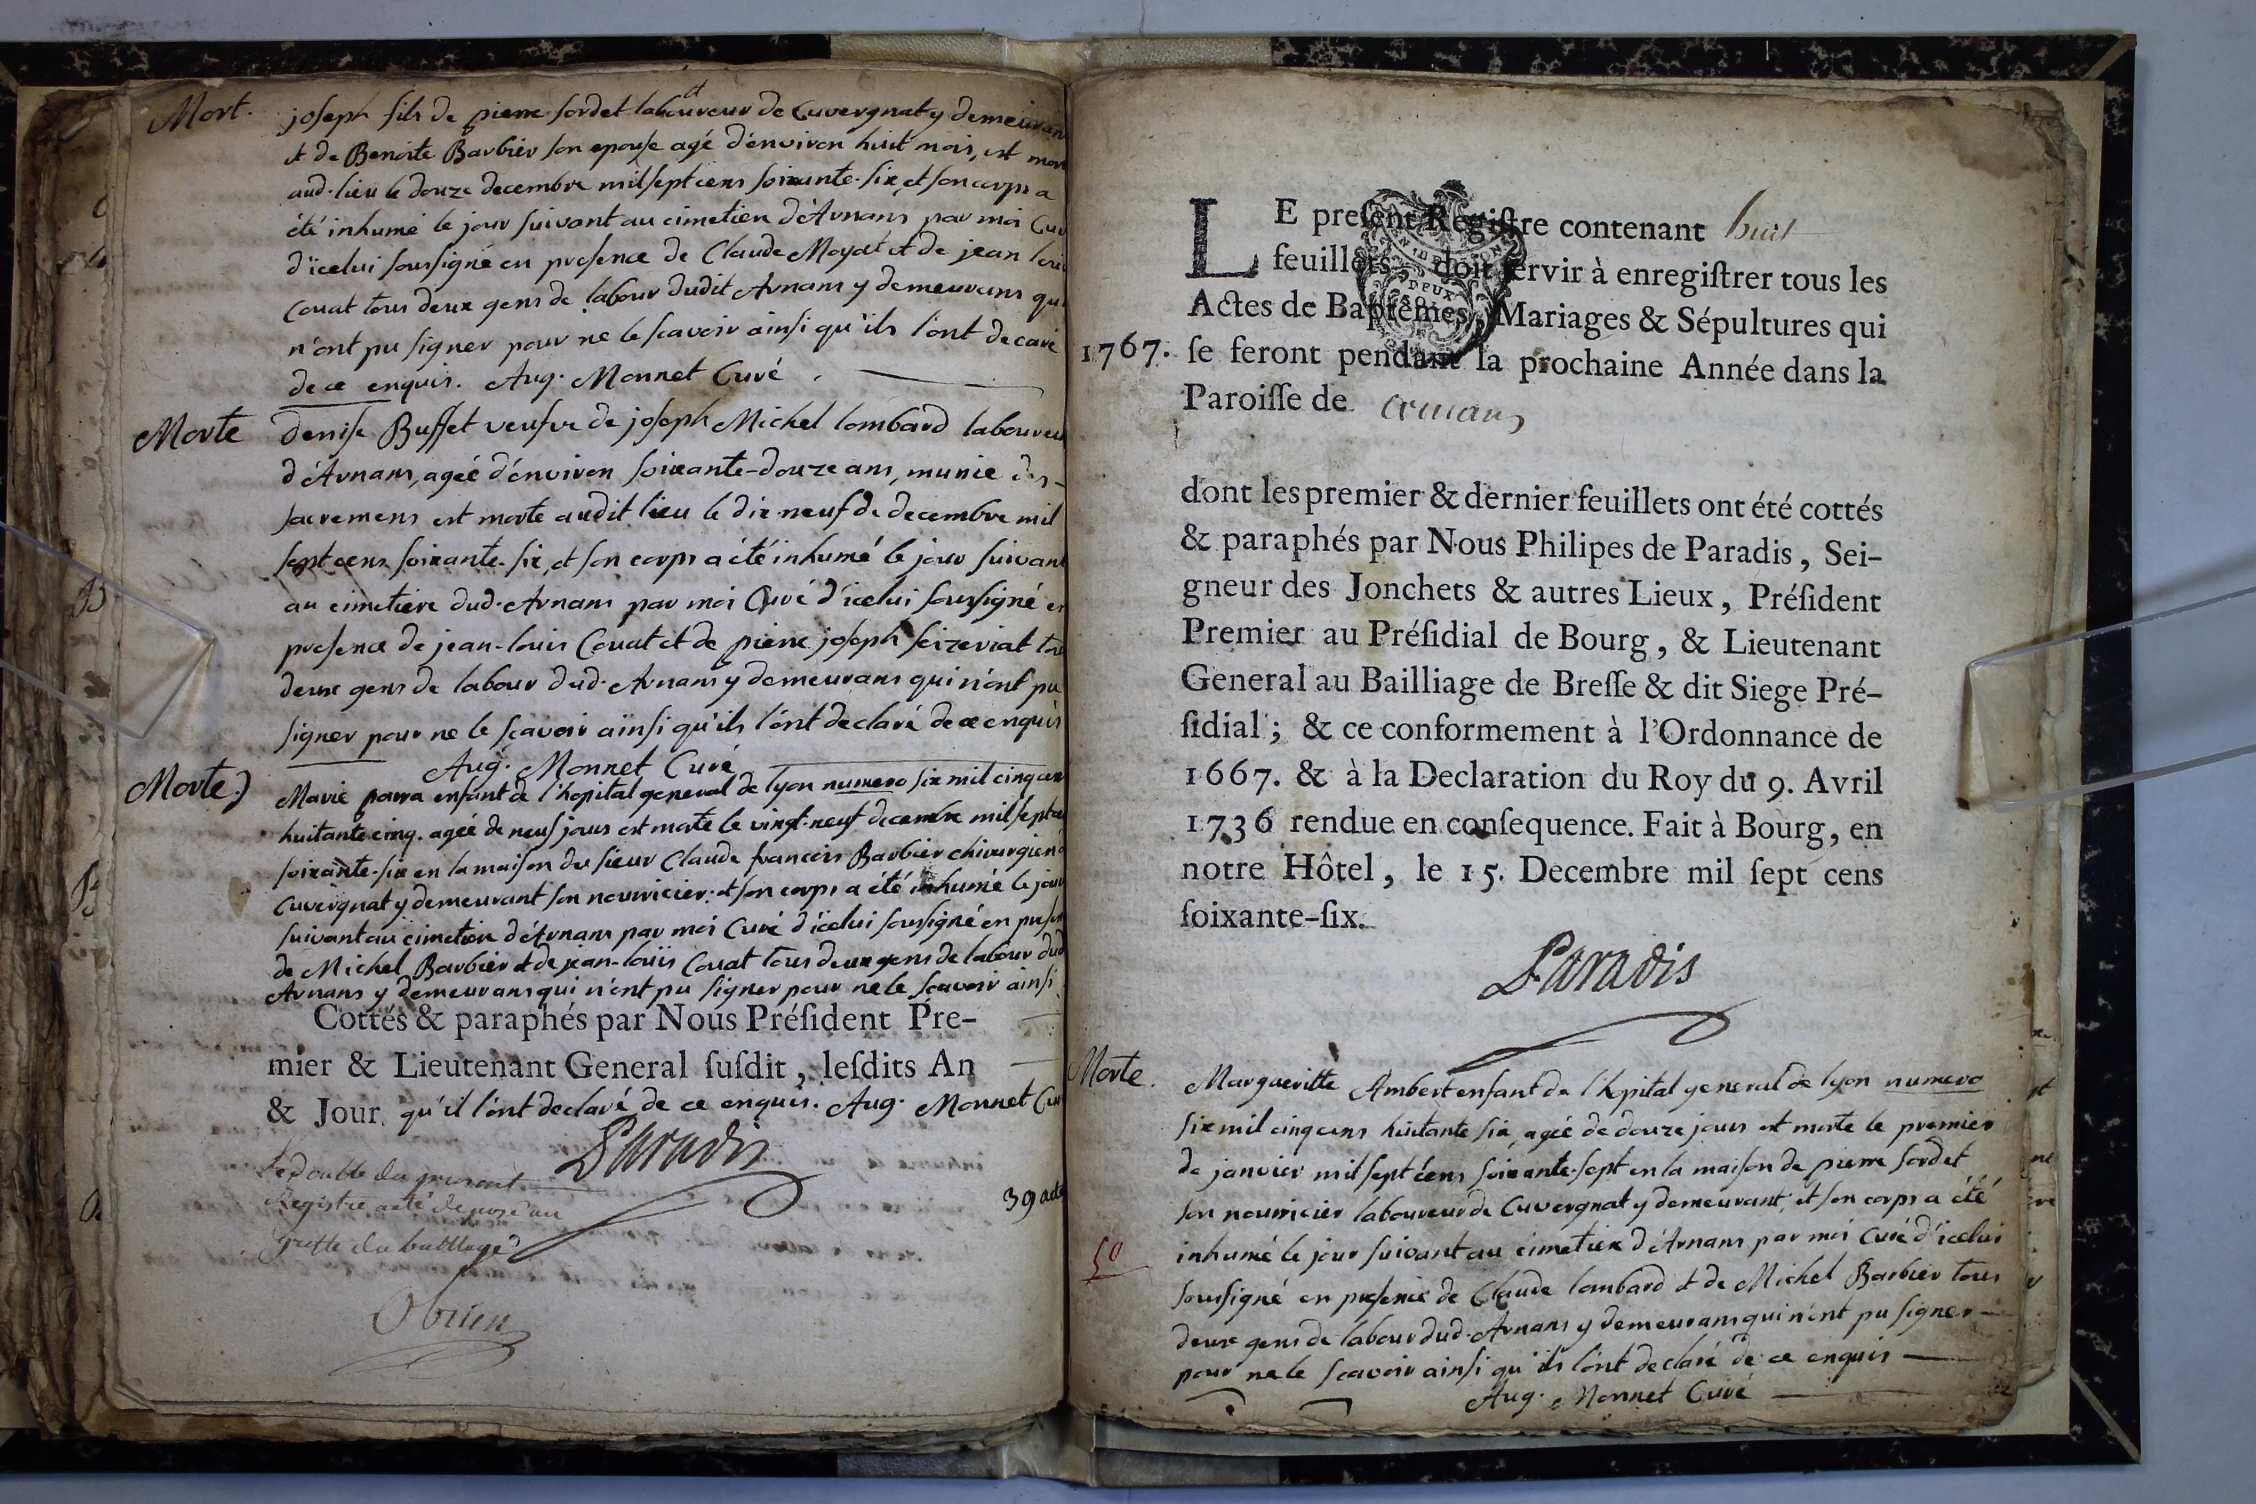 Mort. joseph fils de pierre sordet laboureur de Cuvergnat y demeurant
et de Benoite Barbier son epouse agé d'environ huit mois, est mort
aud. lieu le douze decembre mil sept cens soixante-six, et son corps a
été inhumé le jour suivant au cimetiere d'Arnans par moi Curé
d'icelui soussigné en presence de Claude Moyat et de jean louis
Couat tous deux gens de labour dudit Arnans y demeurans qui
n'ont pu signer pour ne le scavoir ainsi qu'ils l'ont declaré
de ce enquis. Aug. Monnet Curé.
Morte denise Buffet veufve de joseph Michel lombard laboureur
d'Arnans, agée d'environ soixante-douze ans, munie des
sacremens est morte audit lieu le dix-neuf de decembre mil
sept cens soixante-six, et son corps a été inhumé le jour suivant
au cimetiere dud. Arnans par moi Curé d'icelui soussigné en
presence de jean-louis Couat et de pierre joseph seizeriat tous
deux gens de labour dud. Arnans y demeurans qui n'ont pu
signer pour ne le scavoir ainsi qu'ils l'ont declaré de ce enquis
Aug. Monnet Curé
Morte) Marie parra enfant de l'hopital general de lyon numero six mil cinq cens
huitante cinq. agée de neuf jours est morte le vingt-neuf decembre mil sept cens
soixante-six en la maison du sieur Claude francois Barbier chirurgien à
Cuvergnat y demeurant son nourricier: et son corps a été inhumé le jour
suivant au cimetiere d'Arnans par moi Curé d'icelui soussigné en presence
de Michel Barbier et de jean-louis Couat tous deux gens de labour dud.
Arnans y demeurans qui n'ont pu signer pour ne le scavoir ainsi
Cottés & paraphés par Nous Président Pre-
mier & Lieutenant General susdit, lesdits An
& Jour. qu'il l'ont declaré de ce enquis. Aug. Monnet Curé
Paradis
Le double du present
Registre a eté deposé au
greffe du bailliage
39 actes
Obrien
LE present Registre contenant huit
feuillets, doit servir à enregistrer tous les
Actes de Baptêmes, Mariages & Sépultures qui
1767. se feront pendant la prochaine Année dans la
Paroisse de arnans
dont les premier & dernier feuillets ont été cottés
& paraphés par Nous Philipes de Paradis, Sei-
gneur des Jonchets & autres Lieux, Président
Premier au Présidial de Bourg, & Lieutenant
General au Bailliage de Bresse & dit Siege Pré-
sidial; & ce conformement à l'Ordonnance de
1667. & à la Declaration du Roy du 9. Avril
1736 rendue en consequence. Fait à Bourg, en
notre Hôtel, le 15. Decembre mil sept cens
soixante-six.
Paradis
Morte. Margueritte Ambert enfant de l'hopital general de lyon numero
six mil cinq cens huitante six, agée de douze jours est morte le premier
de janvier mil sept cens soixante-sept en la maison de pierre sordet
son nourricier laboureur de Cuvergnat y demeurant, et son corps a été
inhumé le jour suivant au cimetiere d'Arnans par moi Curé d'icelui
50
soussigné en presence de Claude lombard et de Michel Barbier tous
deux gens de labour dud. Arnans y demeurans qui n'ont pu signer
pour ne le scavoir ainsi qu'ils l'ont declaré de ce enquis
Aug. Monnet Curé